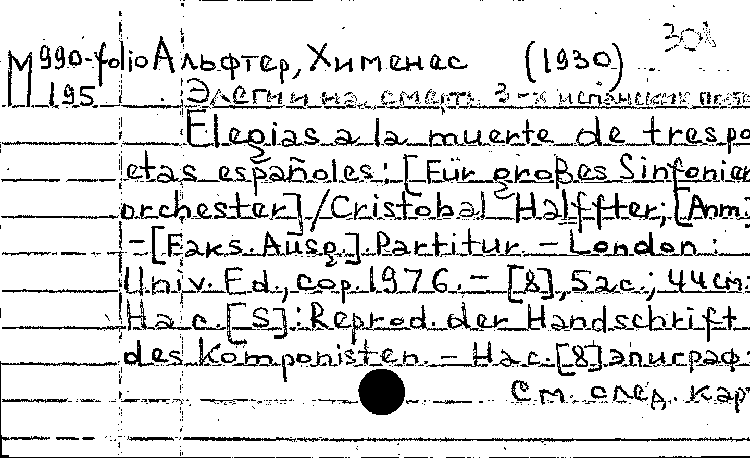 308
M 990-folio Альфтер, Хименес (1930)
195 Элегии на смерть 3-х испанских
Elegias a la muerte de tres po
etas españoles: [Für großes Sinfonier
orchester] / Cristobal Halffter; [Anm.
- [Faks. Ausg.]. Partitur. - London:
Univ. Ed., cop. 1976. - [8], 52 с.; 44 cm.
На с. [S]: Reprod. der Handschrift
des Komponisten. - На с. [8] эпиграф:
См. след. кар